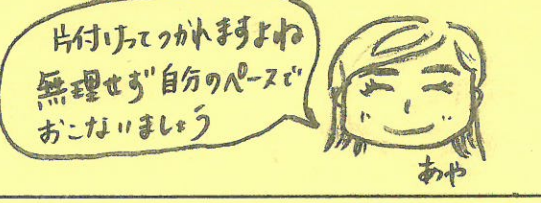 片付けってつかれますよね
無理せず自分のペースで
おこないましょう
あや